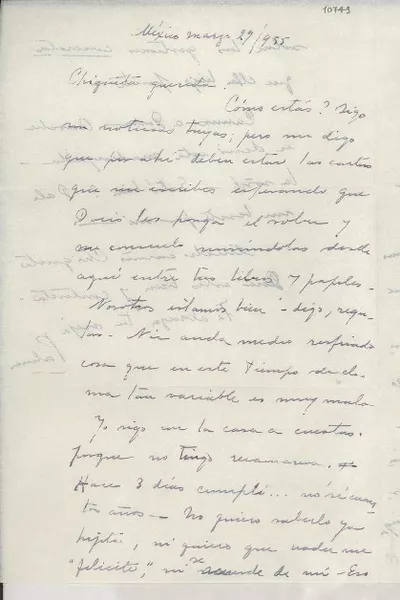 10743
México marzo 29/955
Chiquita querida:
Cómo estás? Sigo
sin noticias tuyas; pero me digo
que por ahí deben estar las cartas
que me escribes esperando que
Doris les ponga el sobre y
me consuelo mirándolas desde
aquí entre tus libros y papeles.
Nosotros estamos bien - digo, regu-
lar. - anda medio resfriado
cosa que en este tiempo de cli-
ma tan variable es muy malo
Yo sigo con la casa a cuestas.
porque no tengo recamarera.
Hace 3 días cumplí... no sé cuán-
tos años - No quiero saberlo ya
hijita, ni quiero que nadie me
"felicite," ni se acuerde de mí - Eso